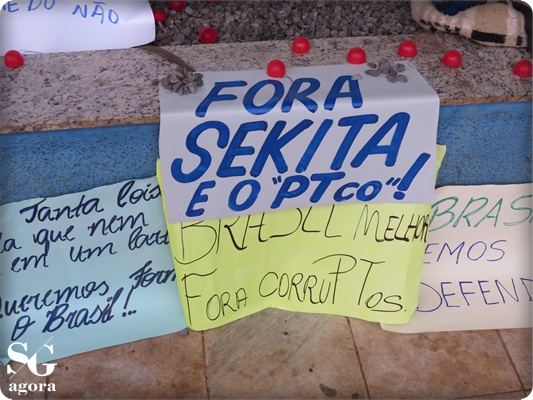 EDO NÃO
FORA
SEKITA
E O "PTco"!
Tanta
que nem
em um
Queremos
O Brasil!..
BRASIL MELHOR
FORA CORRUPTos.
BRAS
EMOS
DEFEND
SG
agora